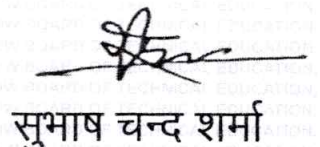 सुभाष चन्द शर्मा